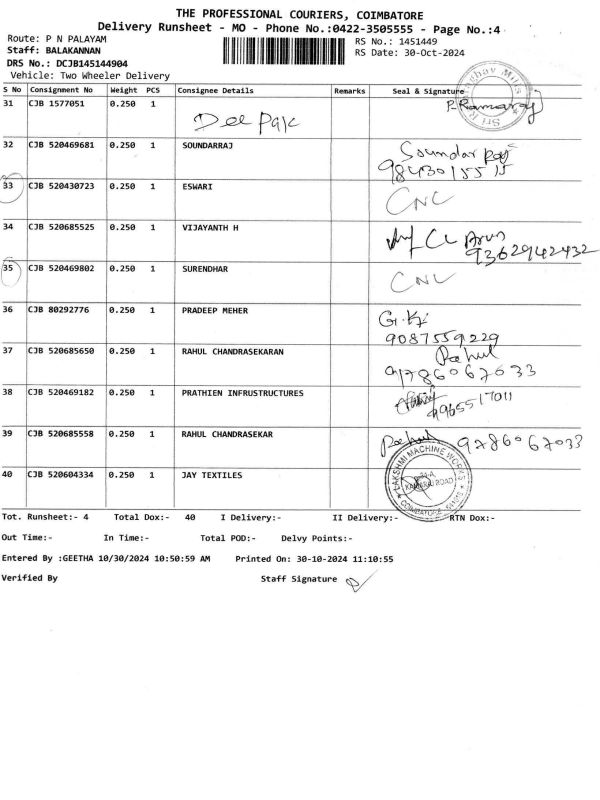 THE PROFESSIONAL COURIERS, COIMBATORE
Delivery Runsheet - MO - Phone No.:0422-3505555 - Page No.:4
Route: P N PALAYAM
RS No.: 1451449
Staff: BALAKANNAN
RS Date: 30-Oct-2024
DRS No.: DCJB145144904
Vehicle: Two Wheeler Delivery
S No Consignment No Weight PCS Consignee Details Remarks Seal & Signature
31 CJB 1577051 0.250 1 Deepak P. Ramaraj
32 CJB 520469681 0.250 1 SOUNDARRAJ Soundar Raj
9843015515
33 CJB 520430723 0.250 1 ESWARI CNC
34 CJB 520685525 0.250 1 VIJAYANTH H Arun
9362942432
35 CJB 520469802 0.250 1 SURENDHAR CNC
36 CJB 80292776 0.250 1 PRADEEP MEHER G.K
9087559229
37 CJB 520685650 0.250 1 RAHUL CHANDRASEKARAN Rahul
9786067033
38 CJB 520469182 0.250 1 PRATHIEN INFRUSTRUCTURES
9965517011
39 CJB 520685558 0.250 1 RAHUL CHANDRASEKAR Rahul 9786067033
40 CJB 520604334 0.250 1 JAY TEXTILES
LAKSHMI MACHINE WORKS
COIMBATORE
Tot. Runsheet:- 4 Total Dox:- 40 I Delivery:- II Delivery:- RTN Dox:-
Out Time:- In Time:- Total POD:- Delvy Points:-
Entered By :GEETHA 10/30/2024 10:50:59 AM Printed On: 30-10-2024 11:10:55
Verified By Staff Signature